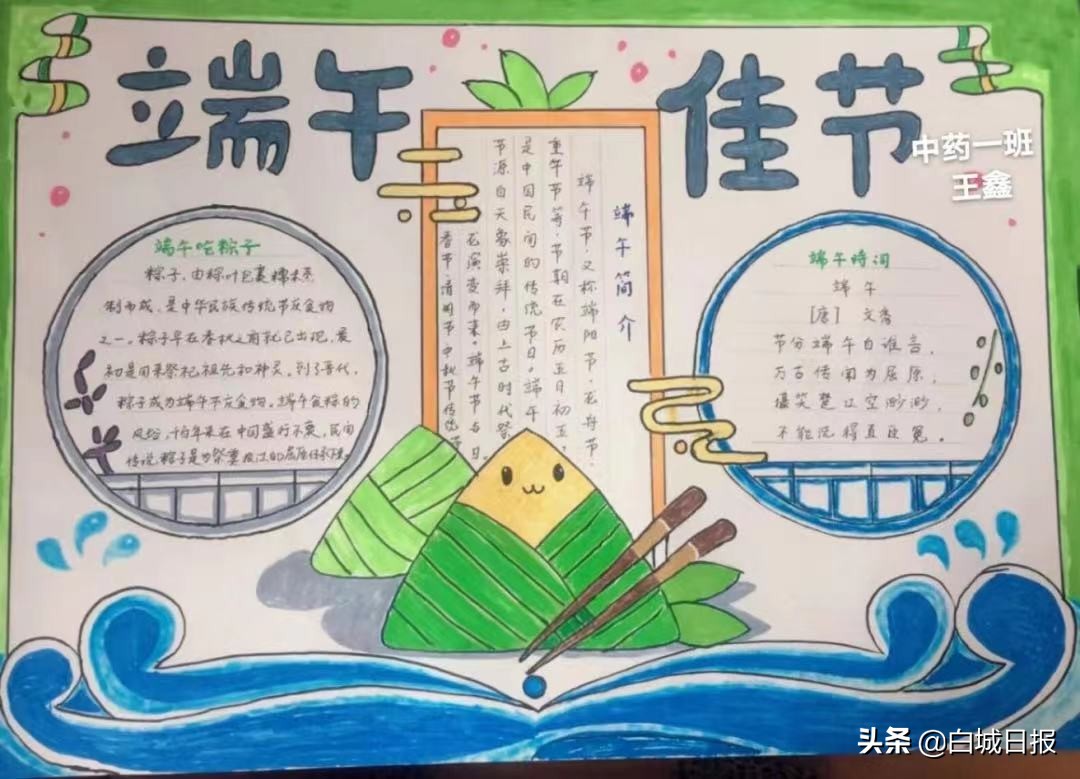 端午佳节
中药一班
王鑫
端午吃粽子
粽子,由粽叶包裹糯米蒸
制而成,是中华民族传统节庆食物
之一。粽子早在春秋之前就已出现,最
初是用来祭祀祖先和神灵,到了晋代,
粽子成为端午节庆食物。端午食粽的
风俗,千百年来在中国盛行不衰,民间
传说粽子是为祭奠投江的屈原传
端午简介
端午节,又称端阳节,龙舟节,
重午节等,节期在农历五月初五,
是中国民间的传统节日。端午
节源自天象崇拜,由上古时代祭
龙演变而来。端午节与
春节、清明节、中秋节传统节
端午诗词
端午
[唐] 文秀
节分端午自谁言,
万古传闻为屈原;
笑楚江空渺渺,
不能洗得直臣冤。
头条 @白城日报